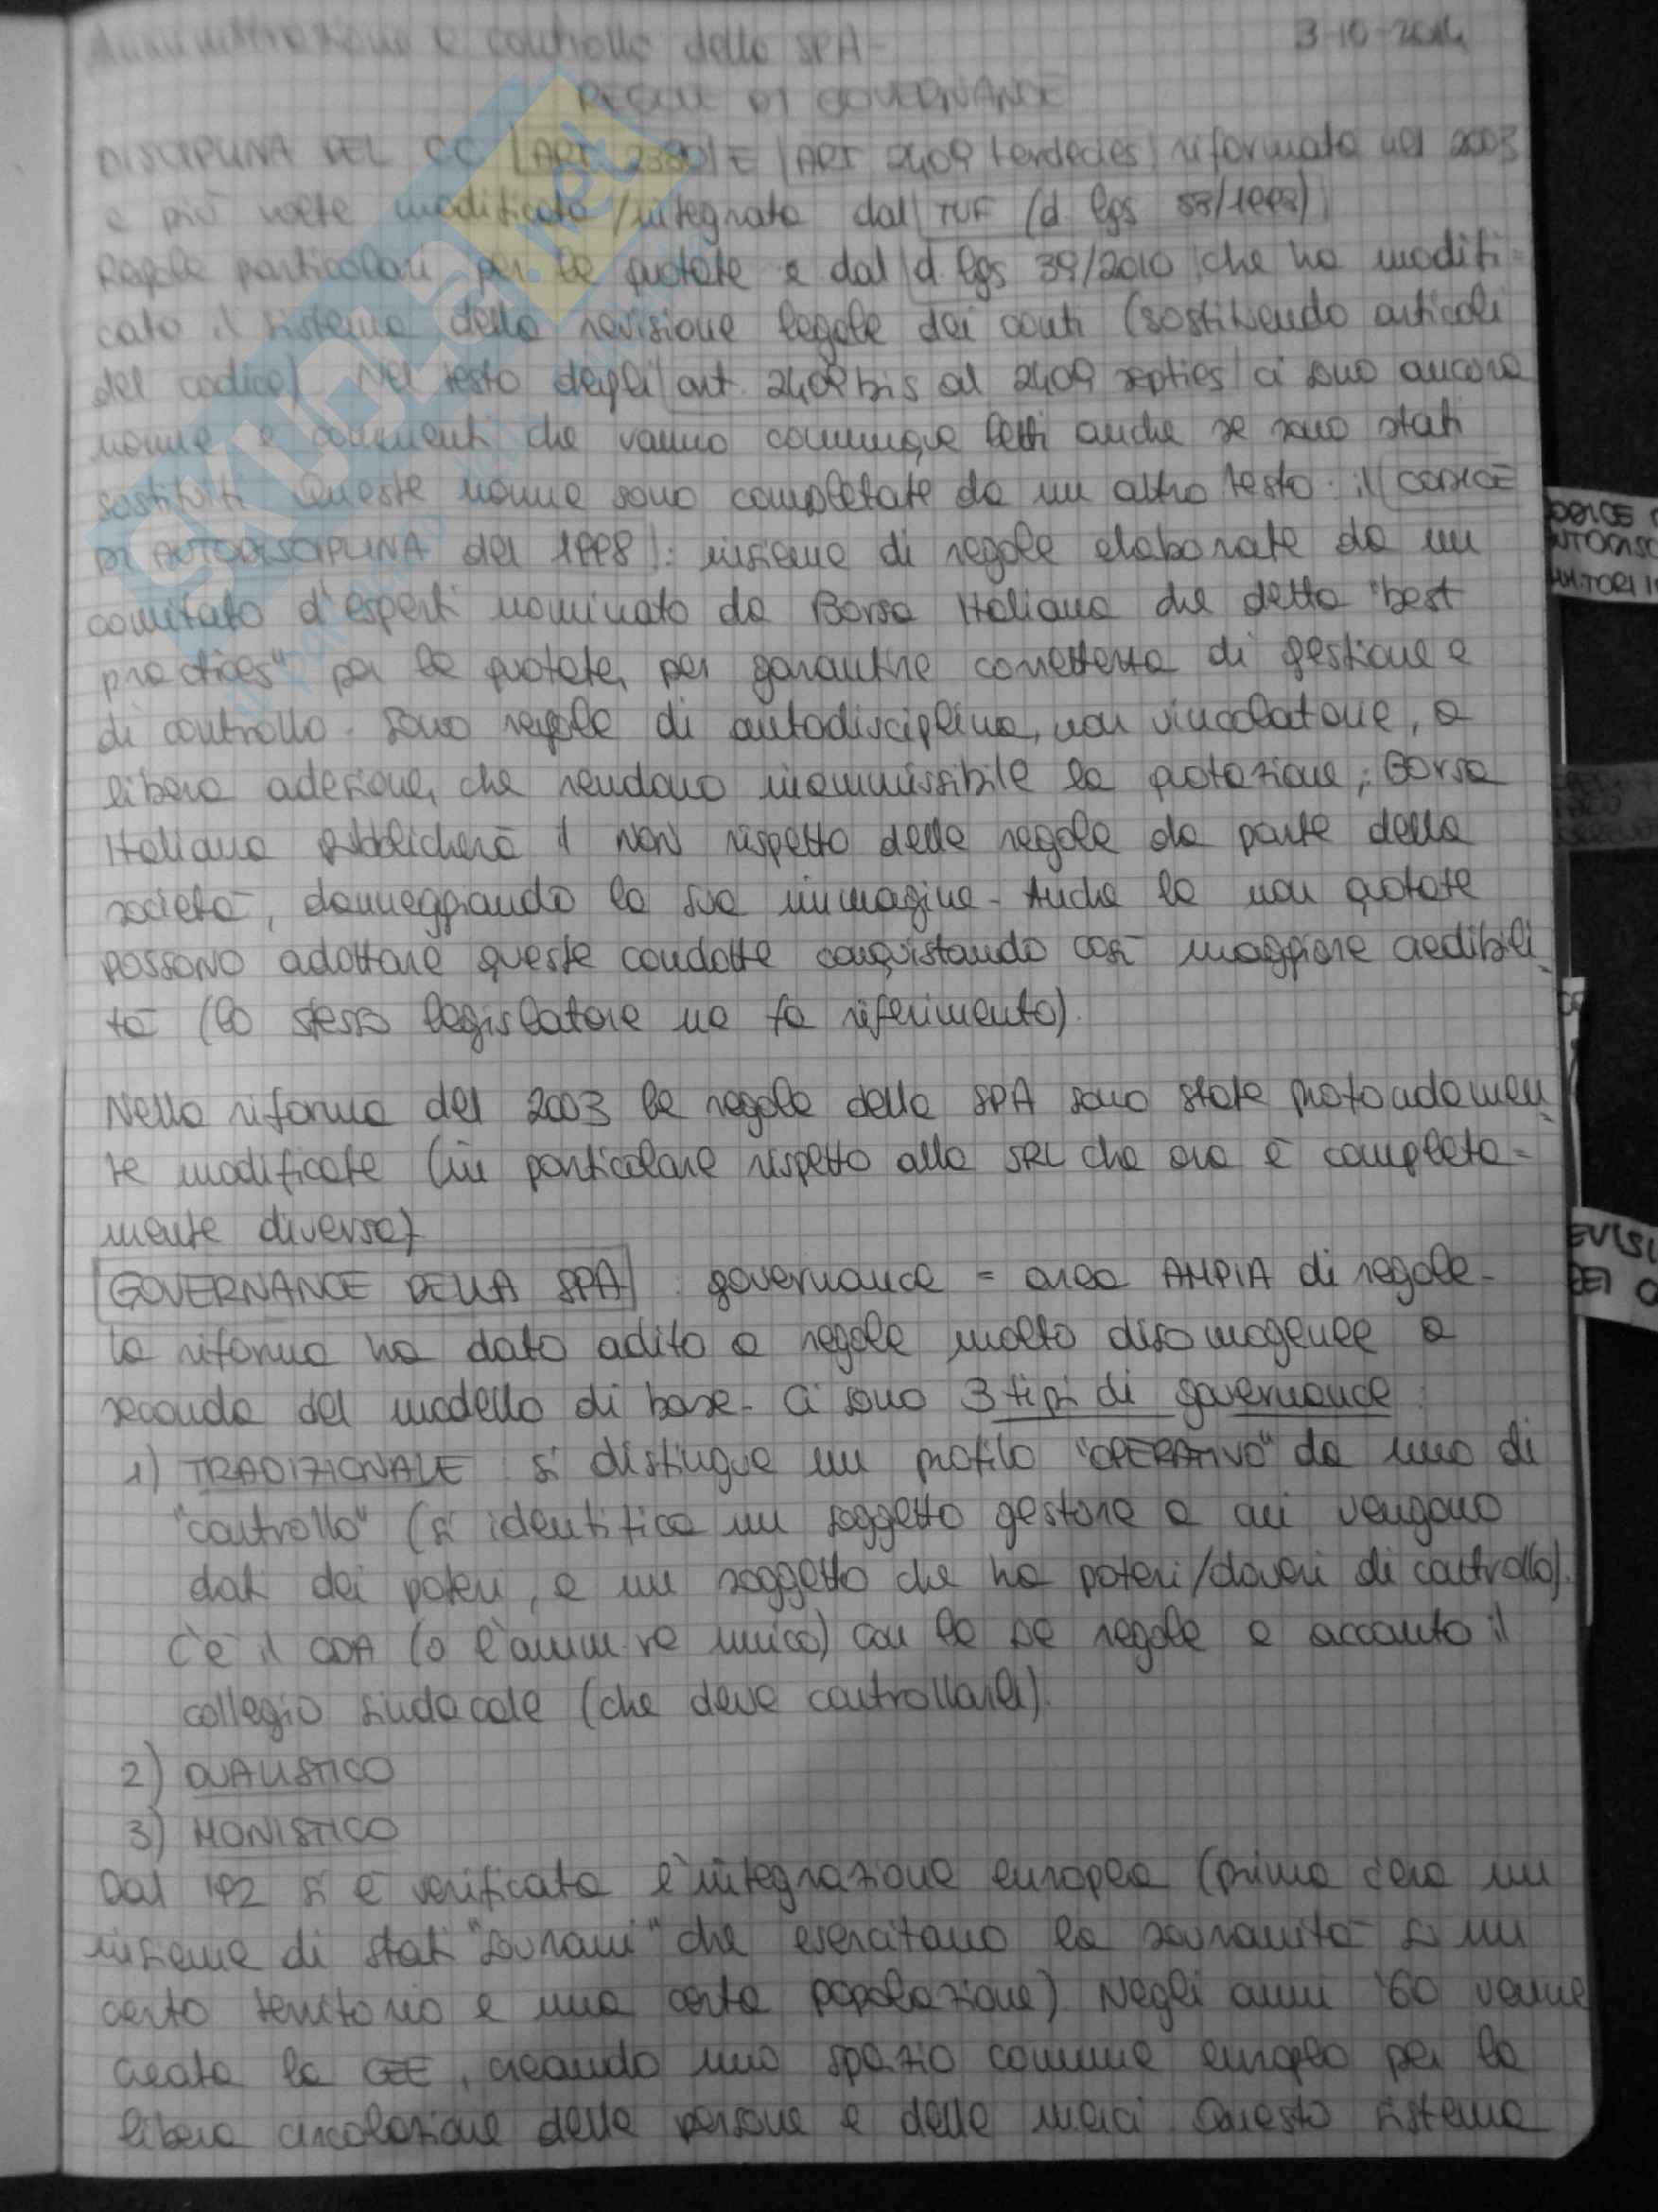 Amministrazione e controllo della SPA- 3-10-2014
REGOLE DI GOVERNANCE
DISCIPLINA DEL CC |ART 2380| E |ART 2409 terdecies| riformata nel 2003
e più volte modificata/integrata dal |TUF (d. lgs 58/1998)|
Regole particolari per le quotate e dal |d. lgs 39/2010| che ha modifi=
cato il sistema della revisione legale dei conti (sostituendo articoli
del codice). Nel testo degli |art. 2409 bis al 2409 septies| ci sono ancora
norme e commenti che vanno comunque letti anche se sono stati
sostituiti. Queste norme sono completate da un altro testo: il |CODICE
DI AUTODISCIPLINA del 1998|: insieme di regole elaborate da un
comitato d'esperti nominato da Borsa Italiana che detta "best
practices" per le quotate, per garantire correttezza di gestione e
di controllo. Sono regole di autodisciplina, non vincolatorie, a
libera adesione, che rendono inammissibile la quotazione; Borsa
Italiana pubblicherà il NON rispetto delle regole da parte della
società, danneggiando la sua immagine- Anche le non quotate
possono adottare queste condotte conquistando così maggiore credibili
tà (lo stesso legislatore ne fa riferimento).
Nella riforma del 2003 le regole della SPA sono state profondamen
te modificate (in particolare rispetto alla SRL che ora è completa=
mente diversa)
|GOVERNANCE DELLA SPA|: governance = area AMPIA di regole-
la riforma ha dato adito a regole molto disomogenee a
seconda del modello di base- Ci sono 3 tipi di governance:
1) TRADIZIONALE: si distingue un profilo "OPERATIVO" da uno di
"controllo" (si identifica un soggetto gestore a cui vengono
dati dei poteri, e un soggetto che ha poteri/doveri di controllo).
C'è il CDA (o l'amm.re unico) con le sue regole e accanto il
collegio sindacale (che deve controllarli).
2) DUALISTICO
3) MONISTICO
Dal '92 si è verificata l'integrazione europea (prima c'era un
insieme di stati "sovrani" che esercitano la sovranità su un
certo territorio e una certa popolazione). Negli anni '60 venne
creata la CEE, creando uno spazio comune europeo per la
libera circolazione delle persone e delle merci. Questo sistema
SKUOLA.net
EVISI
DEI